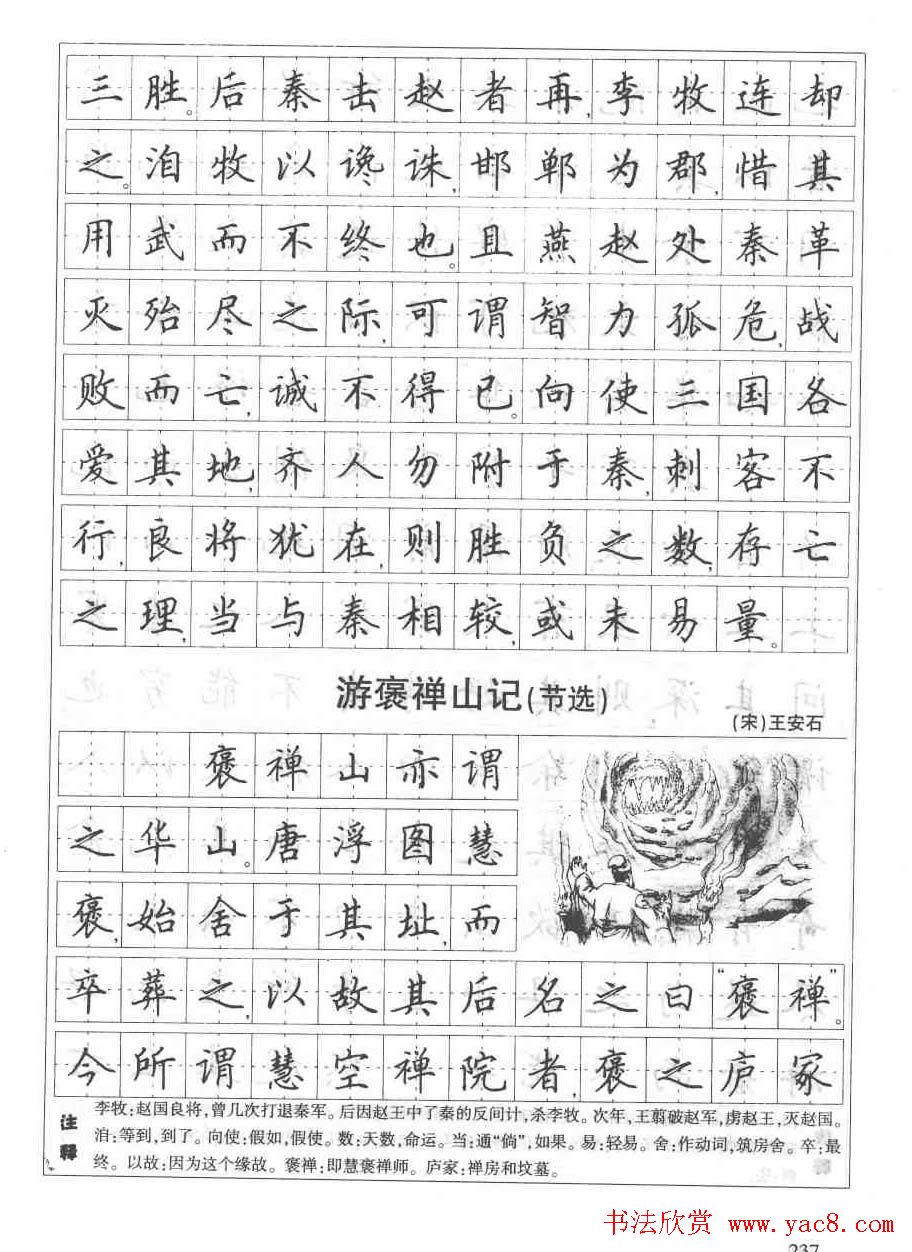 三胜。后秦击赵者再,李牧连却
之。洎牧以谗诛,邯郸为郡,惜其
用武而不终也。且燕赵处秦革
灭殆尽之际,可谓智力孤危,战
败而亡,诚不得已。向使三国各
爱其地,齐人勿附于秦,刺客不
行,良将犹在,则胜负之数,存亡
之理,当与秦相较,或未易量。
游褒禅山记(节选)
(宋)王安石
褒禅山亦谓
之华山。唐浮图慧
褒,始舍于其址,而
卒葬之,以故其后名之曰“褒禅”。
今所谓慧空禅院者,褒之庐冢
注释
李牧:赵国良将,曾几次打退秦军。后因赵王中了秦的反间计,杀李牧。次年,王翦破赵军,虏赵王,灭赵国。
洎:等到,到了。向使:假如,假使。数:天数,命运。当:通“倘”,如果。易:轻易。舍:作动词,筑房舍。卒:最
终。以故:因为这个缘故。褒禅:即慧褒禅师。庐冢:禅房和坟墓。
书法欣赏 www.yac8.com
237